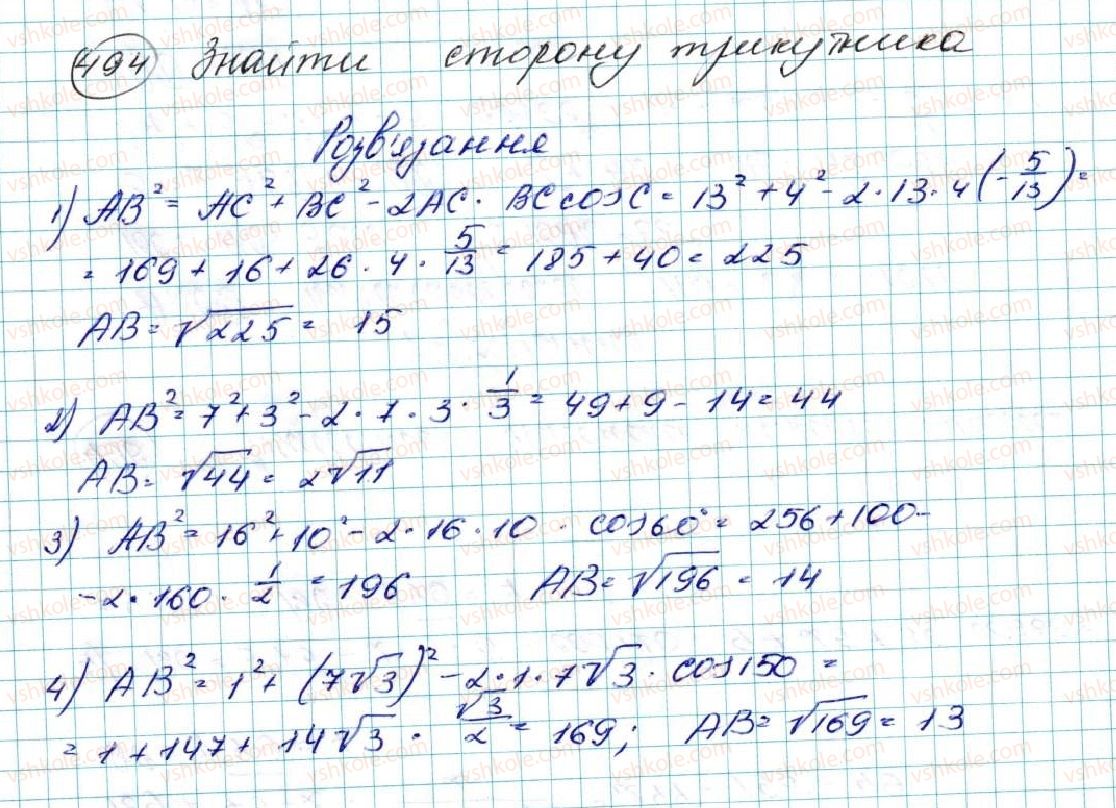 494 Знайти сторону трикутника
Розв'язання
1) AB² = AC² + BC² - 2AC · BC cos C = 13² + 4² - 2 · 13 · 4 (-5/13) =
= 169 + 16 + 26 · 4 · 5/13 = 185 + 40 = 225
AB = √225 = 15
2) AB² = 7² + 3² - 2 · 7 · 3 · 1/3 = 49 + 9 - 14 = 44
AB = √44 = 2√11
3) AB² = 16² + 10² - 2 · 16 · 10 · cos 60° = 256 + 100 -
- 2 · 160 · 1/2 = 196 AB = √196 = 14
4) AB² = 1² + (7√3)² - 2 · 1 · 7√3 · cos 150 =
= 1 + 147 + 14√3 · √3/2 = 169; AB = √169 = 13